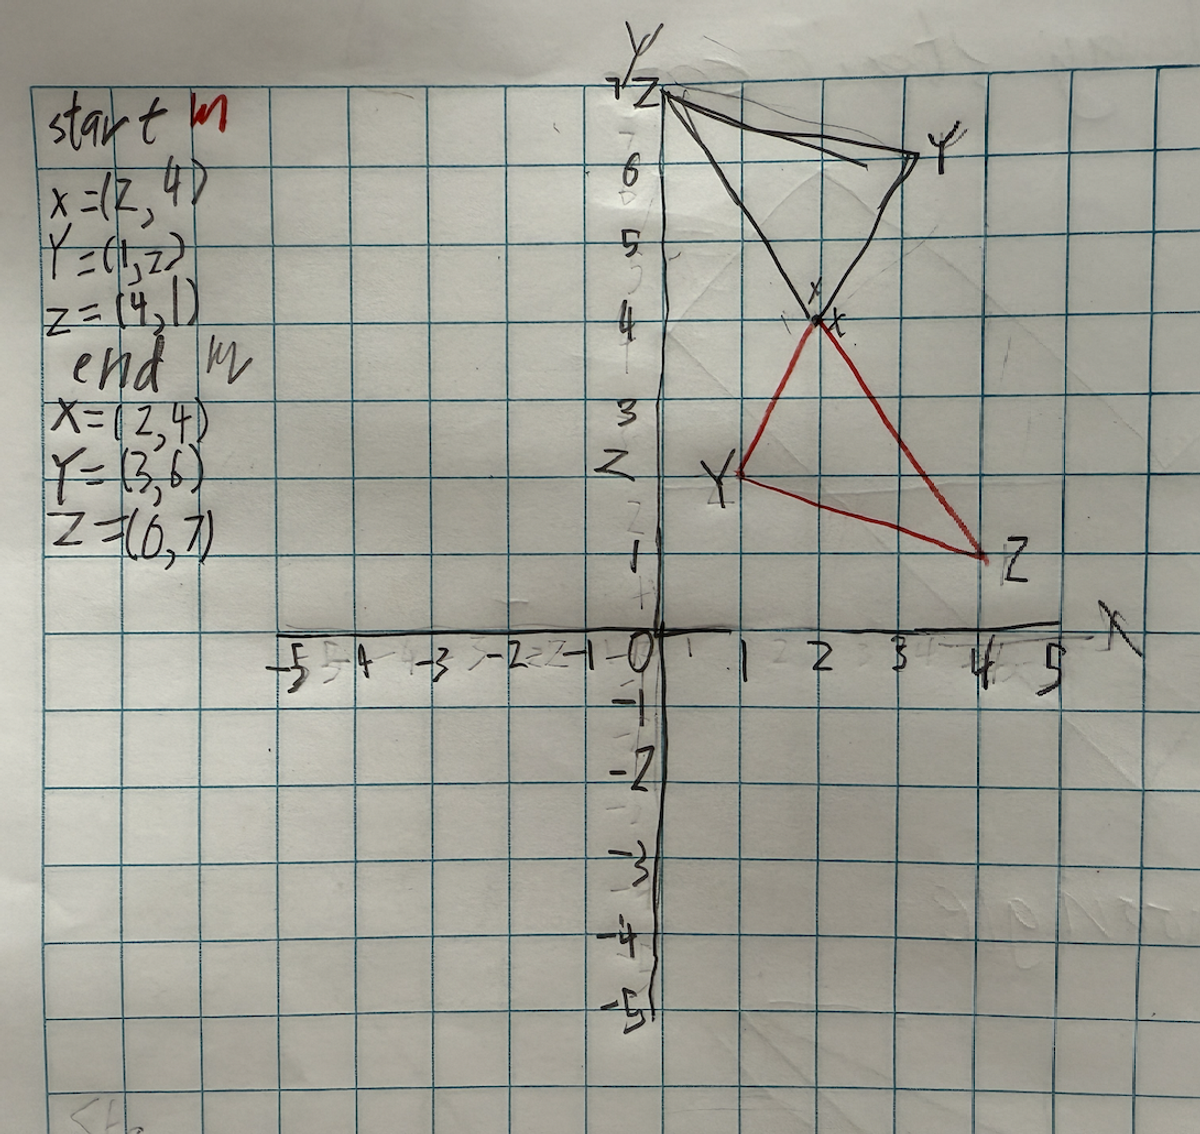 start M
x=(2,4)
Y=(1,2)
z=(4,1)
end M
X=(2,4)
Y=(3,6)
Z=(0,7)
Y
7 Z
6 Y
5
4 x
x
3
2 Y
1 Z
X
-5 -4 -3 -2 -1 0 1 2 3 4 5
-1
-2
-3
-4
-5